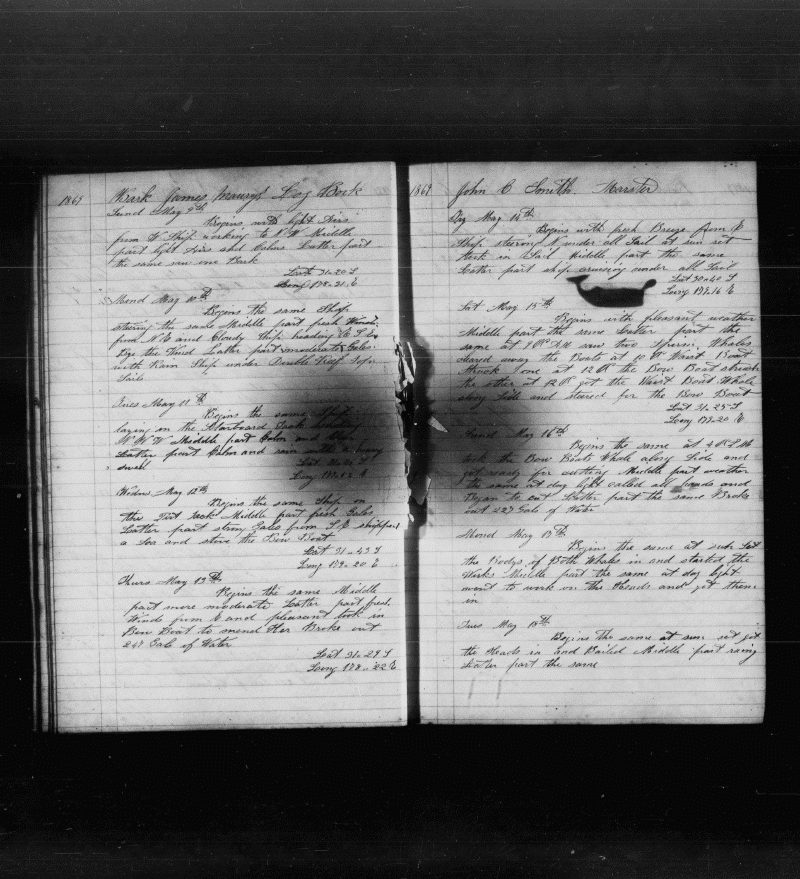 1869 Bark James Maury's Log Book
Sund May 9th
Begins with light Airs
from W Ship working to N W Middle
part light Airs and Calms Latter part
the same saw one Bark
Latt 31-20 S
Long 178-31 E
Mond May 10th
Begins the same Ship
steering the same Middle part fresh Winds
from N E and Cloudy Ship heading
the Wind Latter part moderate Gales
with Rain Ship under Double Reef Top
Sails
Tues May 11th
Begins the same Ship
laying on the Starboard Tack heading
N W W Middle part Calm and
Latter part Calm and rain with a heavy
swell
Latt
Long
Wedns May 12th
Begins the same Ship on
the Port Tack Middle part fresh Gales
Latter part strong Gales from S E shipped
a Sea and stove the Bow Boat
Lat 31-43 S
Long 179-20 E
Thurs May 13th
Begins the same Middle
part more moderate Latter part fresh
Winds from E and pleasant took in
Bow Boat to mend Her Broke out
247 Gals of Water
Lat 31-29 S
Long 178-22 E
1869 John C Smith Marster
May 14th
Begins with fresh Breeze from E
Ship steering N under all Sail at sun set
took in Sail Middle part the same
Latter part ship cruising under all Sail
Lat 30-40 S
Long 179-16 E
Sat May 15th
Begins with pleasant weather
Middle part the same Latter part the
same at 8 AM saw two Sperm Whales
lowered away the Boats at 10 Waist Boat
struck one at 12 the Bow Boat struck
the other at 12 got the Waist Boat Whale
along Side and steered for the Bow Boat
Lat 31-25 S
Long 179-20 E
Sund May 16th
Begins the same at 4 P.M.
took the Bow Boats Whale along Side and
got ready for cutting Middle part weather
the same at day light called all hands and
Began to cut Latter part the same Broke
out 227 Gals of Water
Mond May 17th
Begins the same at sun Set
the Bodys of Both Whales in and started the
Works Middle part the same at day light
went to work on the Heads and got them
in
Tues May 18th
Begins the same at sun set got
the Heads in and Boiled Middle part rainy
Latter part the same